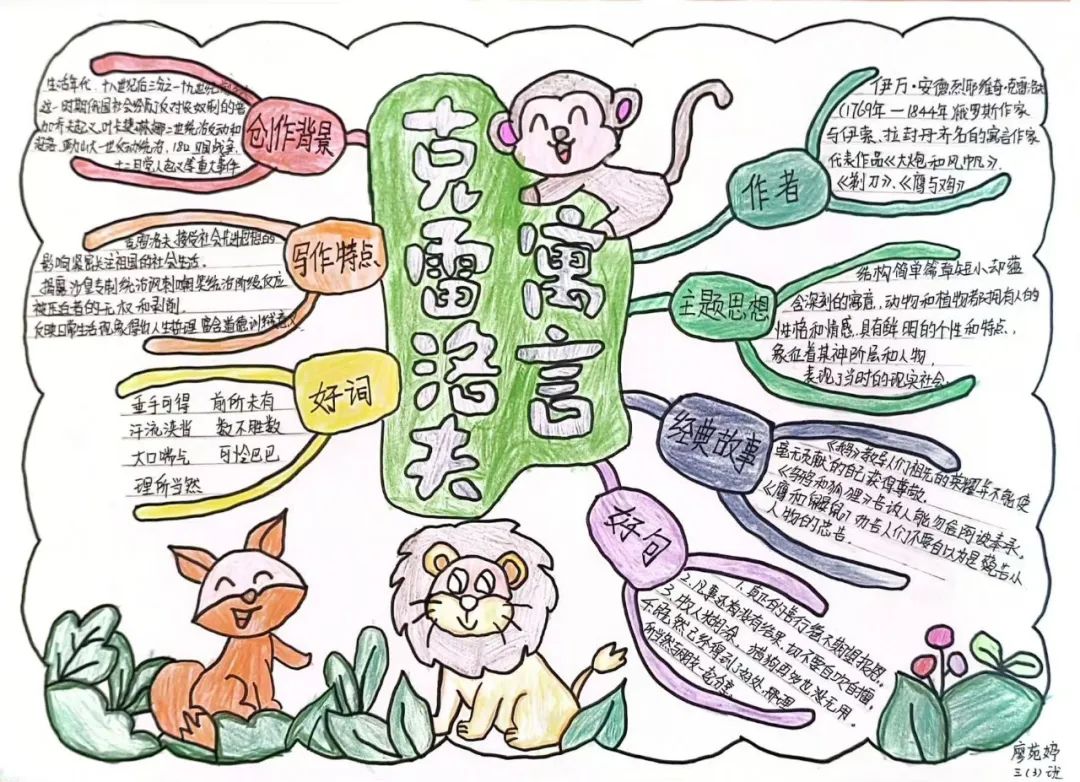 克雷洛夫
寓言
创作背景
生活年代:十八世纪后三分之一十九世纪
这一时期俄国社会经历了反对农奴制的普
加乔夫起义、叶卡捷琳娜二世统治反动和
亚历山大一世反动统治,1812卫国战争,
十二月党人起义等重大事件
写作特点
克雷洛夫接受社会先进思想的
影响紧密关注祖国的社会生活。
揭露沙皇专制统治讽刺嘲笑统治阶级反应
被压迫者的无权和剥削。
反映日常生活现象得出人生哲理富含道德训练意义
好词
垂手可得 前所未有
汗流浃背 数不胜数
大口喘气 可怜巴巴
理所当然
作者
伊万·安德烈耶维奇·克雷洛夫
(1769年—1844年俄罗斯作家
与伊索、拉封丹齐名的寓言作家
代表作品《大炮和风帆》、
《剃刀》、《鹰与鸡》
主题思想
结构简单篇章短小却蕴
含深刻的寓意,动物和植物都拥有人的
性格和情感,具有鲜明的个性和特点,
象征着某种阶层和人物,
表现了当时的现实社会。
经典故事
《鹅》教导人们祖先的荣耀并不能使
毫无贡献的自己获得尊敬。
《乌鸦和狐狸》告诉人能勿舍两被奉承,
《鹰和鼹鼠》劝告人们不要自以为是藐告小
人物的忠告。
好句
1.真正的善行每不敢望报恩。
2.凡事还有没有结果,切不要自吹自擂,
3.敌人找机会,猫狗再多也没无用。
不既然已经得到了好处,那理
所当然与朋友一起分享
廖苑婷
三(3)